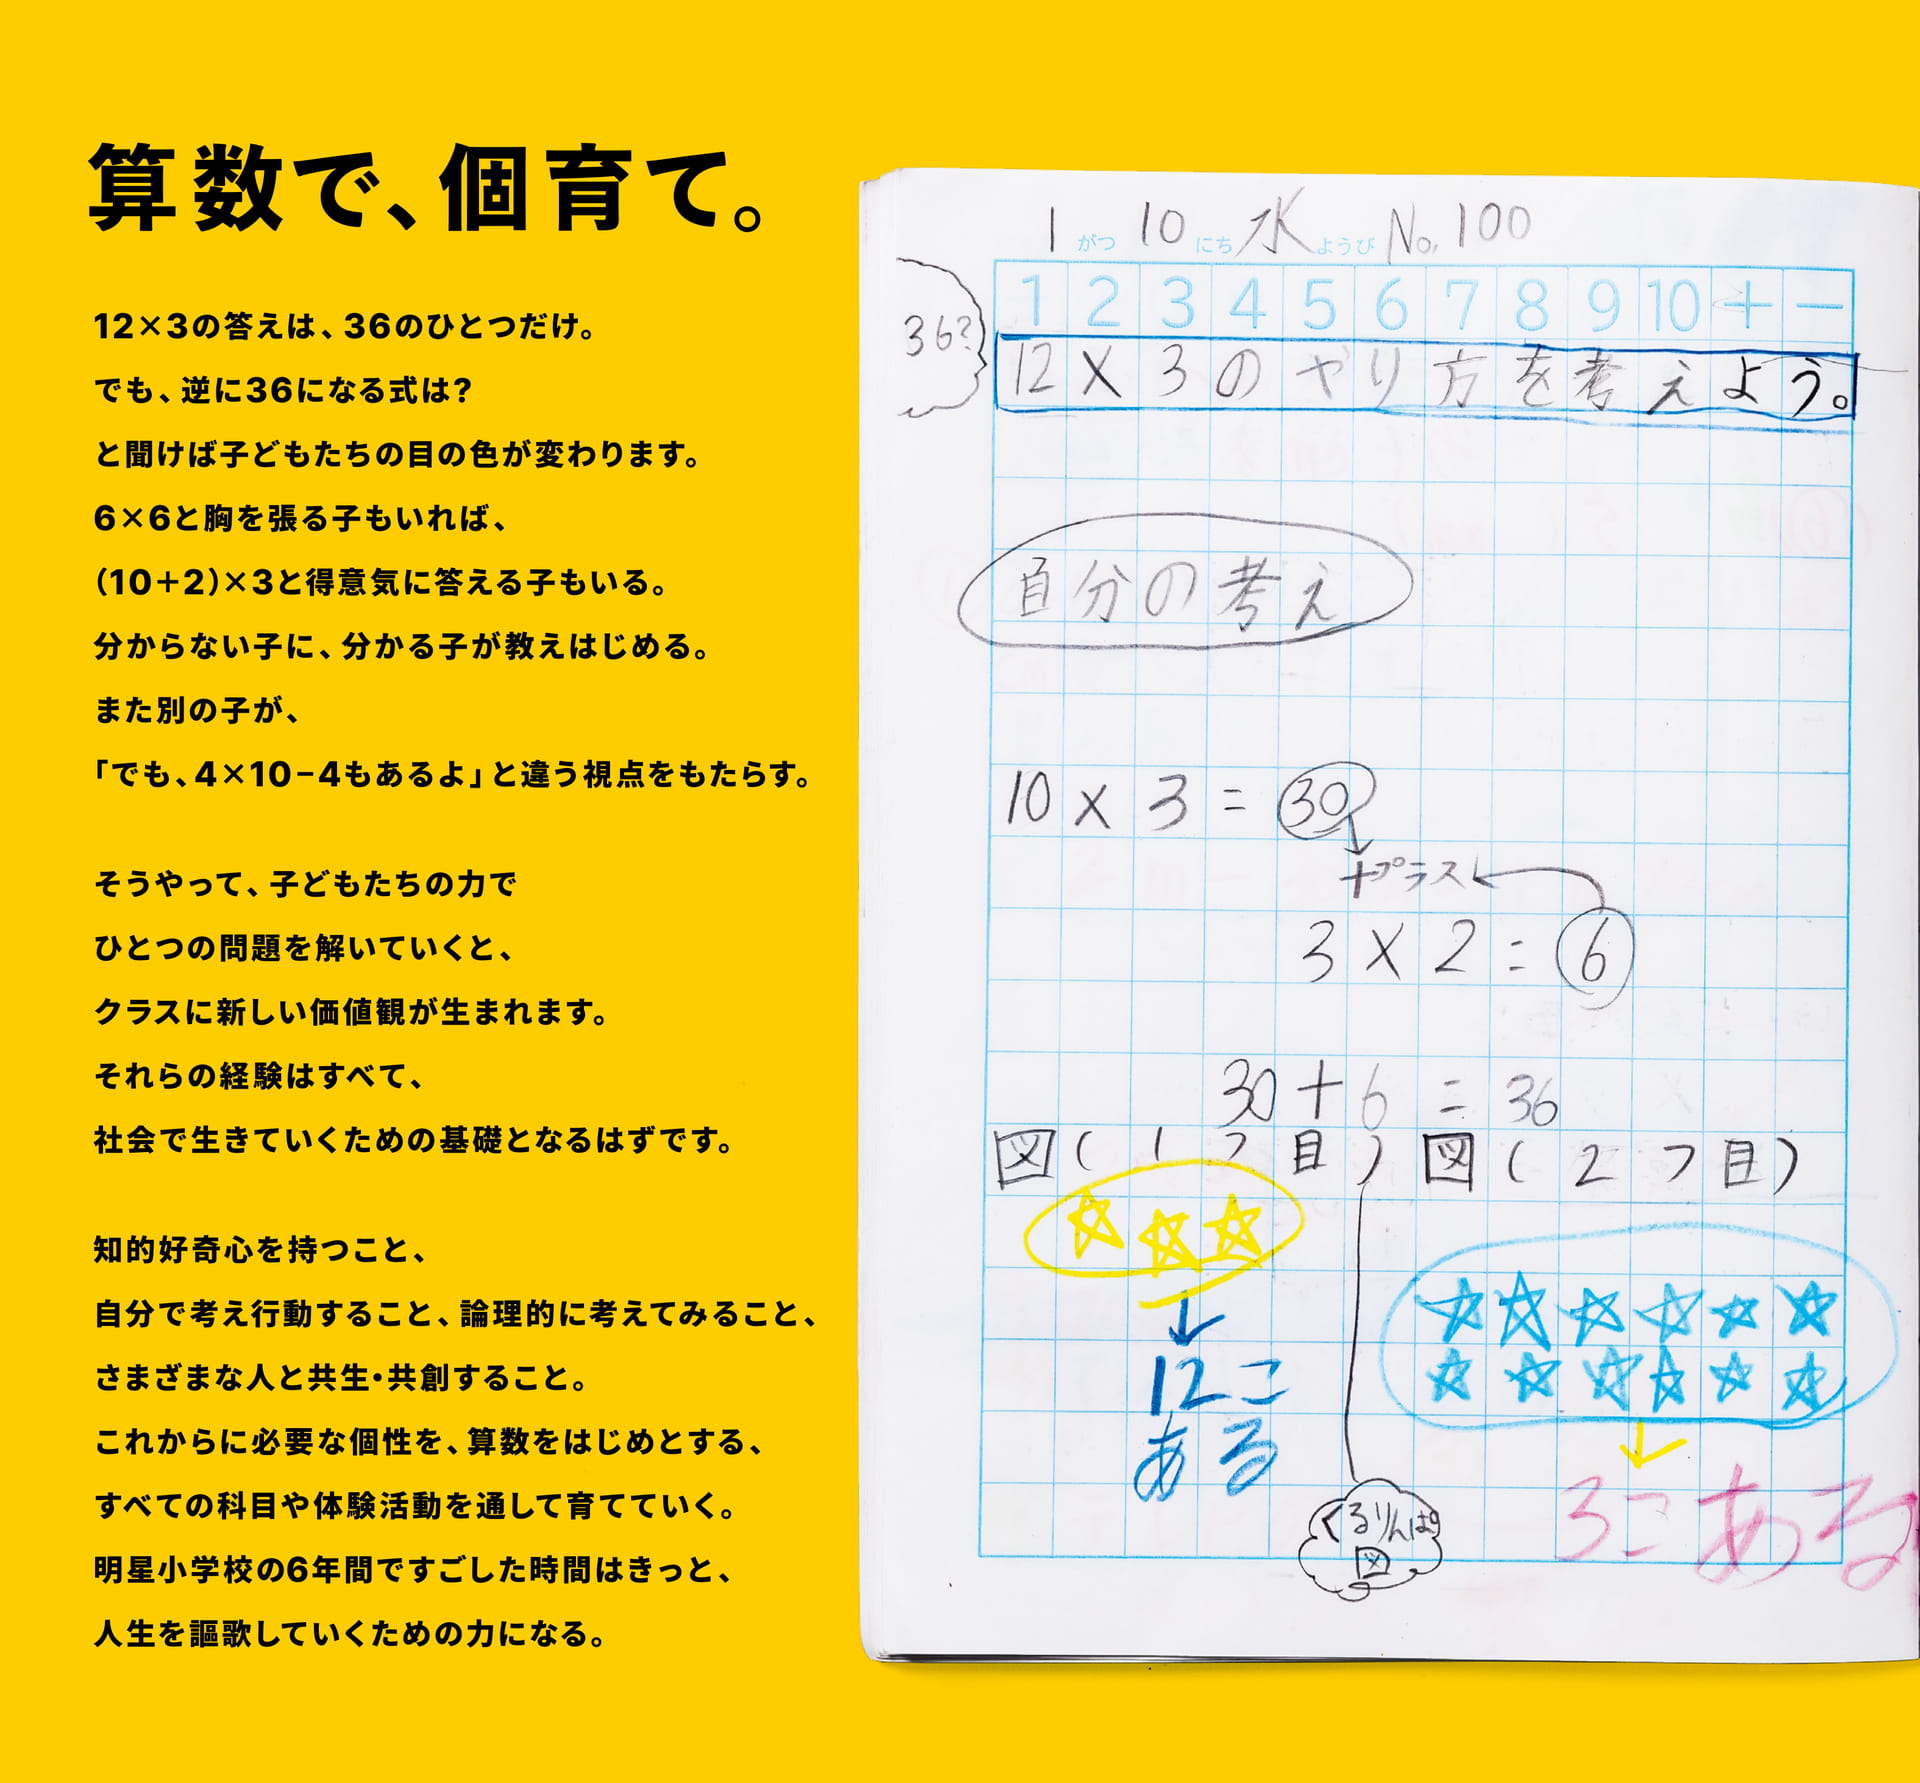 算数で、個育て。
12×3の答えは、36のひとつだけ。
でも、逆に36になる式は？
と聞けば子どもたちの目の色が変わります。
6×6と胸を張る子もいれば、
（10＋2）×3と得意気に答える子もいる。
分からない子に、分かる子が教えはじめる。
また別の子が、
「でも、4×10−4もあるよ」と違う視点をもたらす。
そうやって、子どもたちの力で
ひとつの問題を解いていくと、
クラスに新しい価値観が生まれます。
それらの経験はすべて、
社会で生きていくための基礎となるはずです。
知的好奇心を持つこと、
自分で考え行動すること、論理的に考えてみること、
さまざまな人と共生・共創すること。
これからに必要な個性を、算数をはじめとする、
すべての科目や体験活動を通して育てていく。
明星小学校の6年間ですごした時間はきっと、
人生を謳歌していくための力になる。
1がつ10にち水ようび No.100
1 2 3 4 5 6 7 8 9 10 + −
36?
12×3のやり方を考えよう。
自分の考え
10×3=30
+プラス
3×2=6
30+6=36
図(1つ目) 図(2つ目)
12こ
ある
3こある
くるりんぱ
図